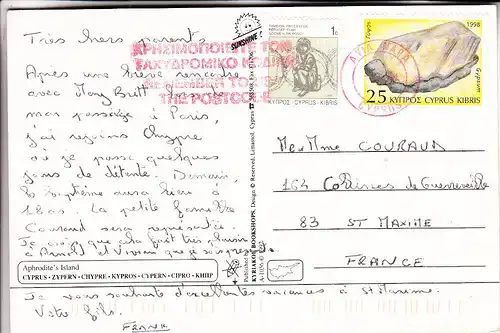 Très chers parents
Après une brève rencontre
avec Mary Britt
mon passage à Paris,
j'ai rejoins Chypre
où je passe quelques
jours de détente. Demain,
le baptême aura lieu à
1800. La petite famille
Couraud sera représentée.
Je crois que cela fait très plaisir
à Arnold et Vivian que je
Je vous souhaite d'excellentes vacances à St Maxime.
Votre fils.
FRANK
Aphrodite's Island
CYPRUS • ZYPERN • CHYPRE • KYPROS • CYPERN • CIPRO • КИПР
SUNSHINE
ΧΡΗΣΙΜΟΠΟΙΕΙΤΕ ΤΟΝ
ΤΑΧΥΔΡΟΜΙΚΟ ΚΩΔΙΚΑ
REMEMBER TO USE
THE POSTCODE
1c
ΚΥΠΡΟΣ • CYPRUS • KIBRIS
1998
Gypsum
25 ΚΥΠΡΟΣ CYPRUS KIBRIS
ΑΓΙΑ ΝΑΠΑ
KYRIAKOU BOOKSHOPS.
Design © Reserved, Limassol, Cyprus
Mr et Mme COURAUD
164 Collines de Guerrevieille
83 ST MAXIME
FRANCE